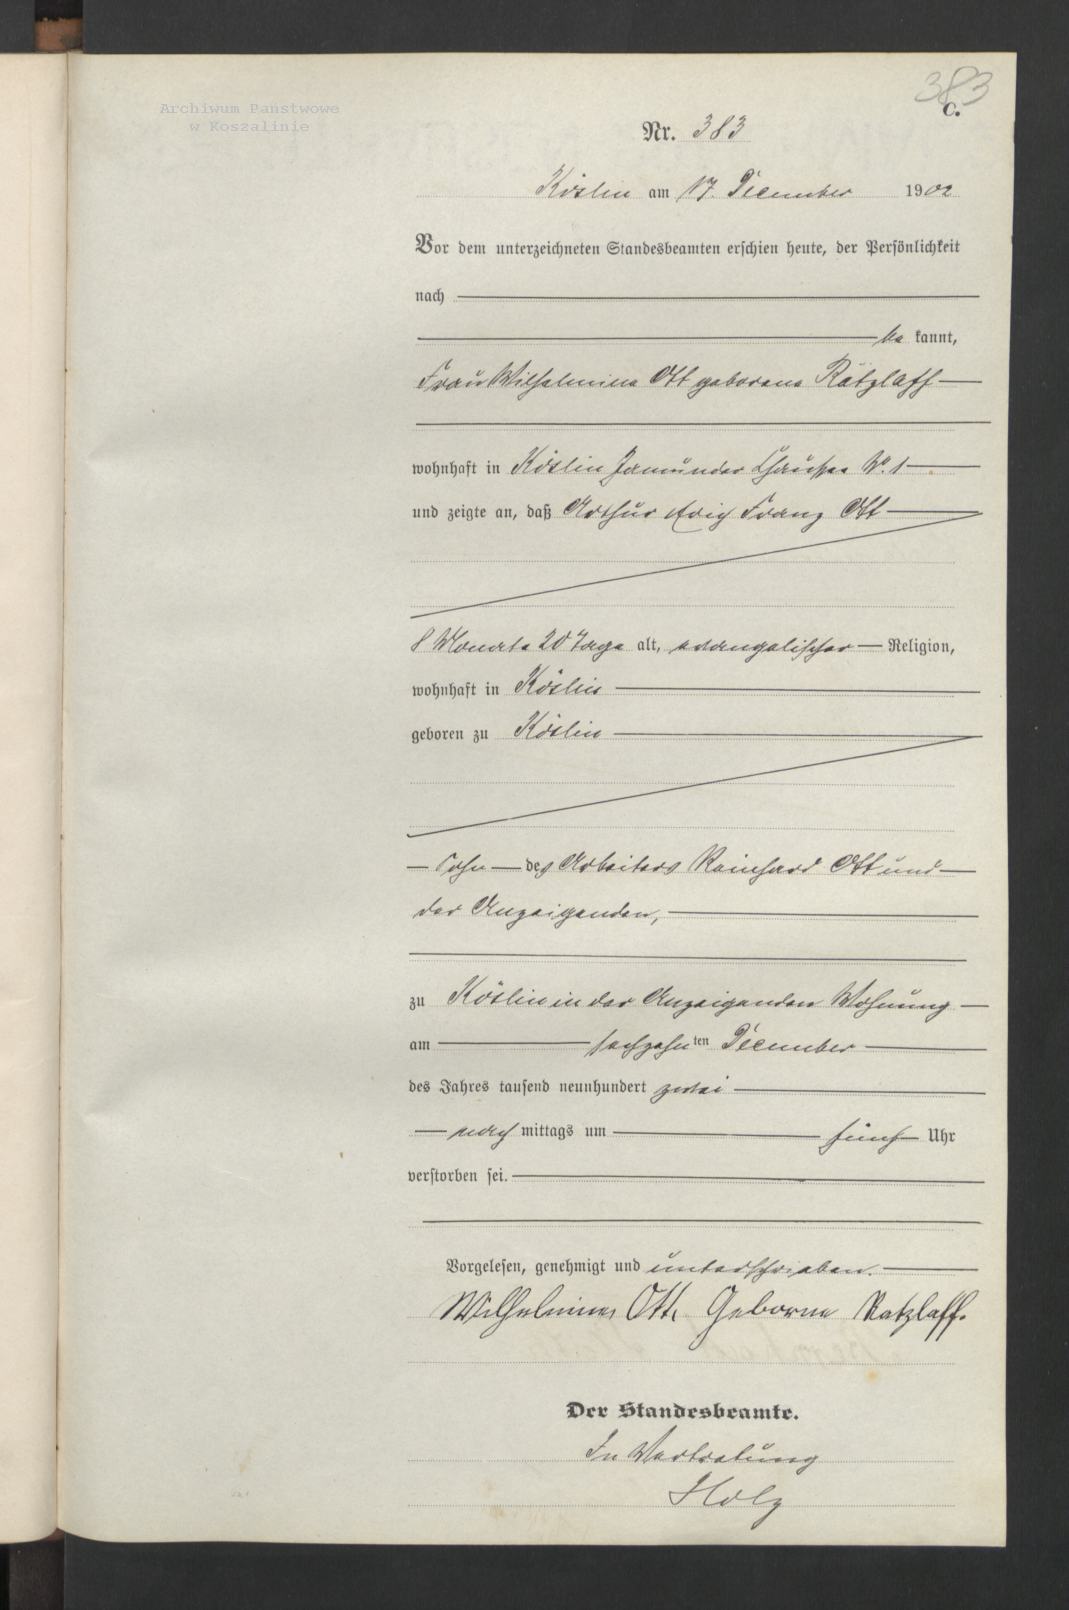 383
C.
Archiwum Państwowe
w Koszalinie
Nr. 383
Köslin am 17. December 1902
Vor dem unterzeichneten Standesbeamten erschien heute, der Persönlichkeit
nach
be kannt,
Frau Wilhelmine Ott geborene Ratzlaff
wohnhaft in Köslin Jamunder Chaussee No. 1
und zeigte an, daß Arthur Erich Franz Ott
8 Monate 20 Tage alt, evangelischer Religion,
wohnhaft in Köslin
geboren zu Köslin
Sohn des Arbeiters Reinhard Ott und
der Anzeigenden,
zu Köslin in der Anzeigenden Wohnung
am sechzehn ten December
des Jahres tausend neunhundert zwei
nach mittags um fünf Uhr
verstorben sei.
Vorgelesen, genehmigt und unterschrieben.
Wilhelmine Ott Geborne Ratzlaff.
Der Standesbeamte.
In Vertretung
Holz